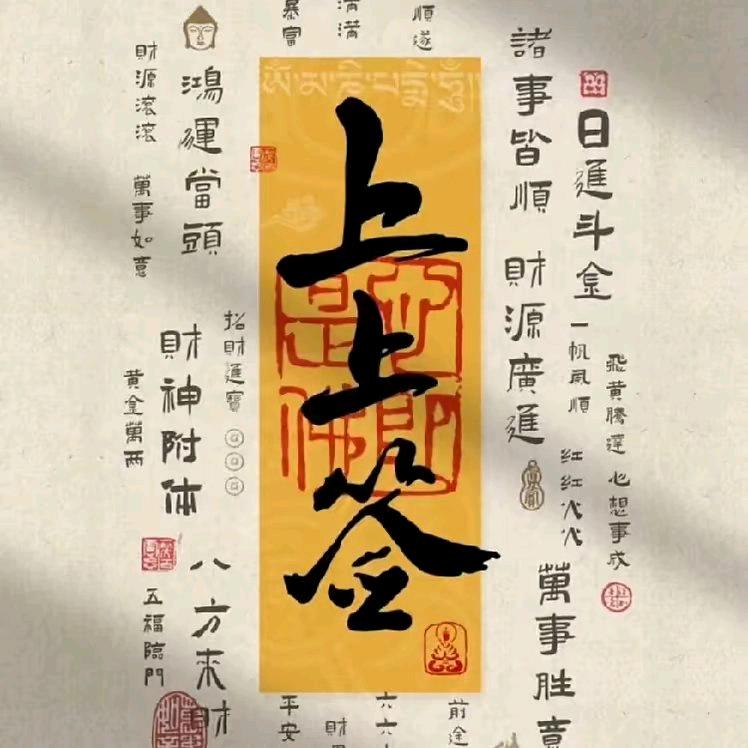 諸事皆順
日進斗金
財源廣進
一帆風順
飛黃騰達
心想事成
紅紅火火
萬事胜意
順遂
滿滿
暴富
上上签
心即是佛
鴻運當頭
財源滾滾
萬事如意
招財進寶
財神附体
黃金萬兩
八方來財
五福臨門
平安
六六
前途